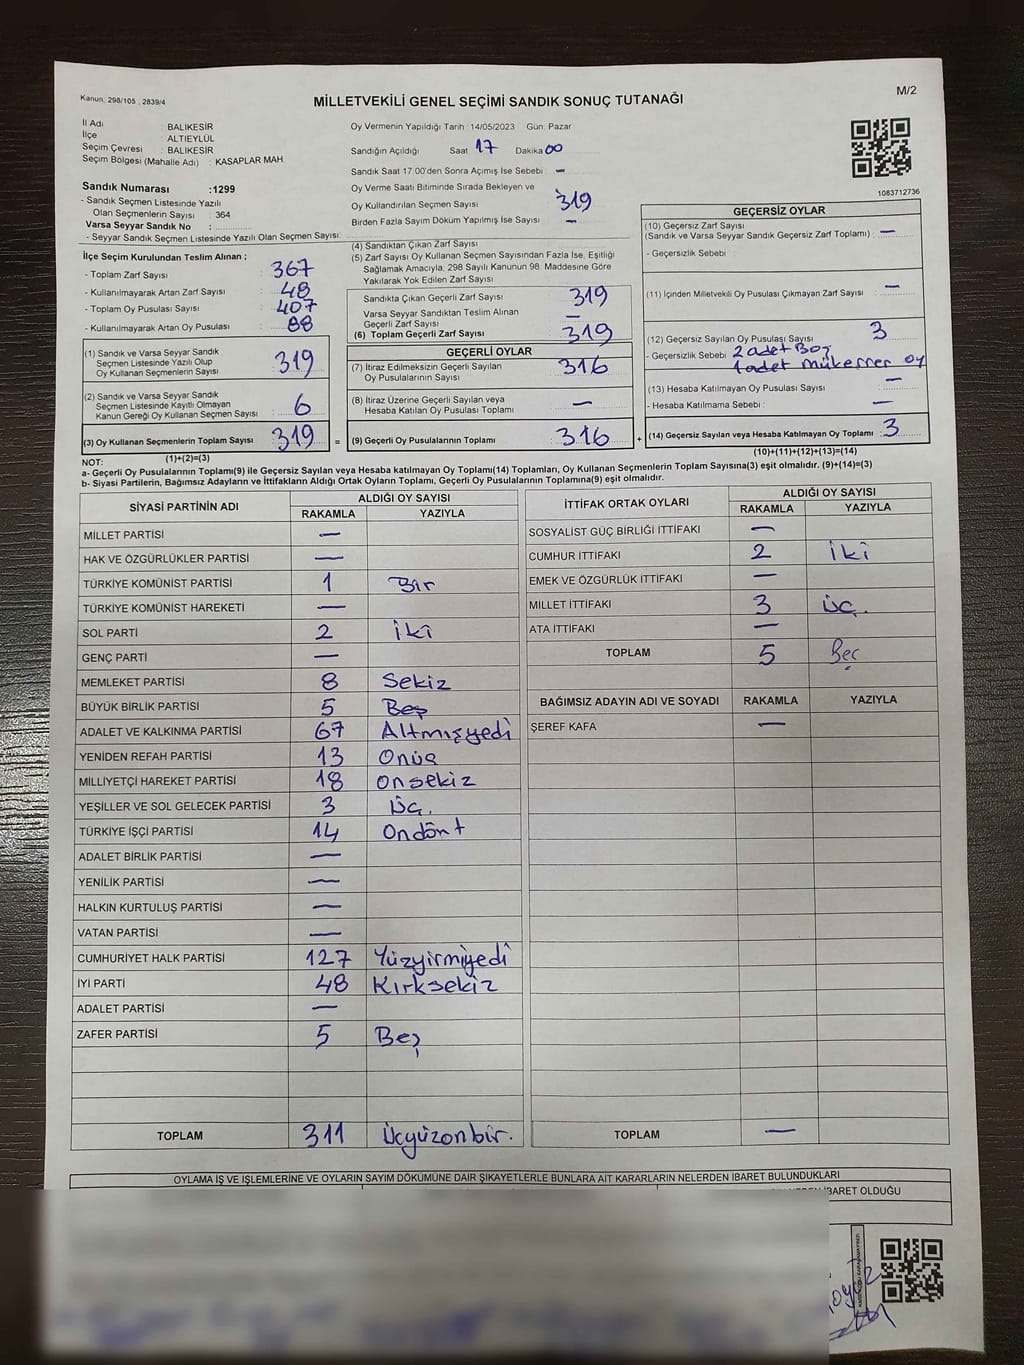 Kanun, 298/105 , 2839/4
M/2
MİLLETVEKİLİ GENEL SEÇİMİ SANDIK SONUÇ TUTANAĞI
İl Adı : BALIKESİR
İlçe : ALTIEYLÜL
Seçim Çevresi : BALIKESİR
Seçim Bölgesi (Mahalle Adı) : KASAPLAR MAH.
Sandık Numarası :1299
- Sandık Seçmen Listesinde Yazılı
Olan Seçmenlerin Sayısı : 364
Varsa Seyyar Sandık No :
- Seyyar Sandık Seçmen Listesinde Yazılı Olan Seçmen Sayısı:
Oy Vermenin Yapıldığı Tarih :14/05/2023 Gün: Pazar
Sandığın Açıldığı Saat 17 Dakika 00
Sandık Saat 17:00'den Sonra Açımış İse Sebebi : -
Oy Verme Saati Bitiminde Sırada Bekleyen ve
Oy Kullandırılan Seçmen Sayısı : 319
Birden Fazla Sayım Döküm Yapılmış İse Sayısı : -
1083712736
İlçe Seçim Kurulundan Teslim Alınan ;
- Toplam Zarf Sayısı : 367
- Kullanılmayarak Artan Zarf Sayısı : 48
- Toplam Oy Pusulası Sayısı : 407
- Kullanılmayarak Artan Oy Pusulası : 88
(1) Sandık ve Varsa Seyyar Sandık
Seçmen Listesinde Yazılı Olup
Oy Kullanan Seçmenlerin Sayısı : 319
(2) Sandık ve Varsa Seyyar Sandık
Seçmen Listesinde Kayıtlı Olmayan
Kanun Gereği Oy Kullanan Seçmen Sayısı : 6
(3) Oy Kullanan Seçmenlerin Toplam Sayısı : 319 =
(1)+(2)=(3)
(4) Sandıktan Çıkan Zarf Sayısı :
(5) Zarf Sayısı Oy Kullanan Seçmen Sayısından Fazla İse, Eşitliği
Sağlamak Amacıyla, 298 Sayılı Kanunun 98. Maddesine Göre
Yakılarak Yok Edilen Zarf Sayısı :
Sandıkta Çıkan Geçerli Zarf Sayısı : 319
Varsa Seyyar Sandıktan Teslim Alınan
Geçerli Zarf Sayısı : -
(6) Toplam Geçerli Zarf Sayısı : 319
GEÇERLİ OYLAR
(7) İtiraz Edilmeksizin Geçerli Sayılan
Oy Pusulalarının Sayısı : 316
(8) İtiraz Üzerine Geçerli Sayılan veya
Hesaba Katılan Oy Pusulası Toplamı : -
(9) Geçerli Oy Pusulalarının Toplamı : 316 +
GEÇERSİZ OYLAR
(10) Geçersiz Zarf Sayısı
(Sandık ve Varsa Seyyar Sandık Geçersiz Zarf Toplamı) : -
- Geçersizlik Sebebi :
(11) İçinden Milletvekili Oy Pusulası Çıkmayan Zarf Sayısı : -
(12) Geçersiz Sayılan Oy Pusulası Sayısı : 3
- Geçersizlik Sebebi : 2 adet Boş
1 adet mükerrer oy
(13) Hesaba Katılmayan Oy Pusulası Sayısı : -
- Hesaba Katılmama Sebebi : -
(14) Geçersiz Sayılan veya Hesaba Katılmayan Oy Toplamı : 3
(10)+(11)+(12)+(13)=(14)
NOT:
a- Geçerli Oy Pusulalarının Toplamı(9) ile Geçersiz Sayılan veya Hesaba katılmayan Oy Toplamı(14) Toplamları, Oy Kullanan Seçmenlerin Toplam Sayısına(3) eşit olmalıdır. (9)+(14)=(3)
b- Siyasi Partilerin, Bağımsız Adayların ve İttifakların Aldığı Ortak Oyların Toplamı, Geçerli Oy Pusulalarının Toplamına(9) eşit olmalıdır.
SİYASİ PARTİNİN ADI ALDIĞI OY SAYISI
RAKAMLA YAZIYLA
MİLLET PARTİSİ -
HAK VE ÖZGÜRLÜKLER PARTİSİ -
TÜRKİYE KOMÜNİST PARTİSİ 1 Bir
TÜRKİYE KOMÜNİST HAREKETİ -
SOL PARTİ 2 İki
GENÇ PARTİ -
MEMLEKET PARTİSİ 8 Sekiz
BÜYÜK BİRLİK PARTİSİ 5 Beş
ADALET VE KALKINMA PARTİSİ 67 Altmışyedi
YENİDEN REFAH PARTİSİ 13 Onüç
MİLLİYETÇİ HAREKET PARTİSİ 18 onsekiz
YEŞİLLER VE SOL GELECEK PARTİSİ 3 Üç.
TÜRKİYE İŞÇİ PARTİSİ 14 Ondört
ADALET BİRLİK PARTİSİ -
YENİLİK PARTİSİ -
HALKIN KURTULUŞ PARTİSİ -
VATAN PARTİSİ -
CUMHURİYET HALK PARTİSİ 127 Yüzyirmiyedi
İYİ PARTİ 48 Kırksekiz
ADALET PARTİSİ -
ZAFER PARTİSİ 5 Beş
TOPLAM 311 Üçyüzonbir.
İTTİFAK ORTAK OYLARI ALDIĞI OY SAYISI
RAKAMLA YAZIYLA
SOSYALİST GÜÇ BİRLİĞİ İTTİFAKI -
CUMHUR İTTİFAKI 2 iki
EMEK VE ÖZGÜRLÜK İTTİFAKI -
MİLLET İTTİFAKI 3 üç.
ATA İTTİFAKI -
TOPLAM 5 Beş
BAĞIMSIZ ADAYIN ADI VE SOYADI RAKAMLA YAZIYLA
ŞEREF KAFA -
TOPLAM -
OYLAMA İŞ VE İŞLEMLERİNE VE OYLARIN SAYIM DÖKÜMÜNE DAİR ŞİKAYETLERLE BUNLARA AİT KARARLARIN NELERDEN İBARET BULUNDUKLARI
İBARET OLDUĞU